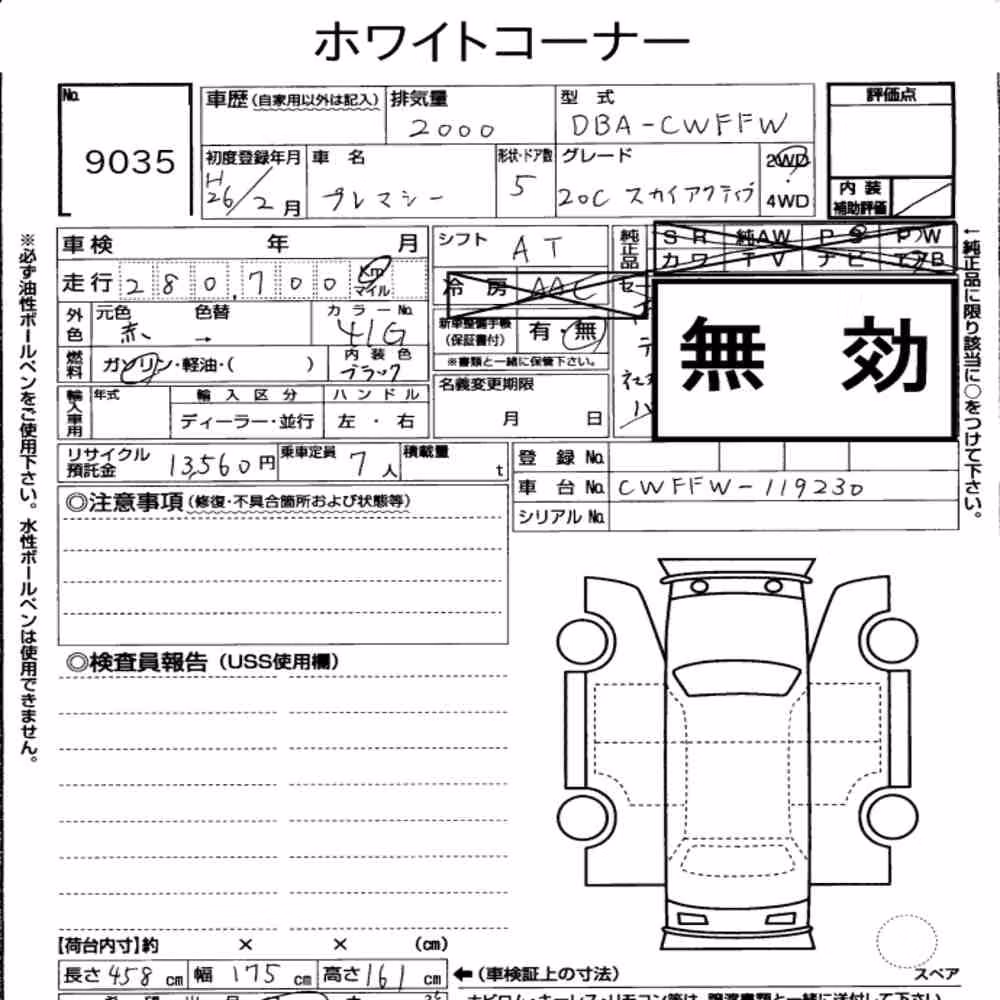 ホワイトコーナー
No. 9035
車歴(自家用以外は記入) 排気量 2000 型式 DBA-CWFFW
評価点
初度登録年月 H26/2月 車名 プレマシー 形状・ドア数 5 グレード 20C スカイアクティブ 2WD・4WD
内装補助評価
車検 年 月
シフト AT
純正品 SR 純AW PS PW
カワ TV ナビ
走行 280,700 Km マイル
冷房 AAC
外色 元色 赤 色替 → カラーNo. 41G
新車整備手帳(保証書付) 有・無
※書類と一緒に保管下さい。
無効
燃料 ガソリン・軽油・( ) 内装色 ブラック
名義変更期限 月 日
輸入車用 年式 輸入区分 ディーラー・並行 ハンドル 左・右
リサイクル預託金 13,560円 乗車定員 7人 積載量 t
登録No.
車台No. CWFFW-119230
シリアルNo.
◎注意事項(修復・不具合箇所および状態等)
◎検査員報告(USS使用欄)
【荷台内寸】約 × × (cm)
長さ 458 cm 幅 175 cm 高さ 161 cm ←(車検証上の寸法)
スペア
※必ず油性ボールペンをご使用下さい。水性ボールペンは使用できません。
←純正品に限り該当に○をつけて下さい。